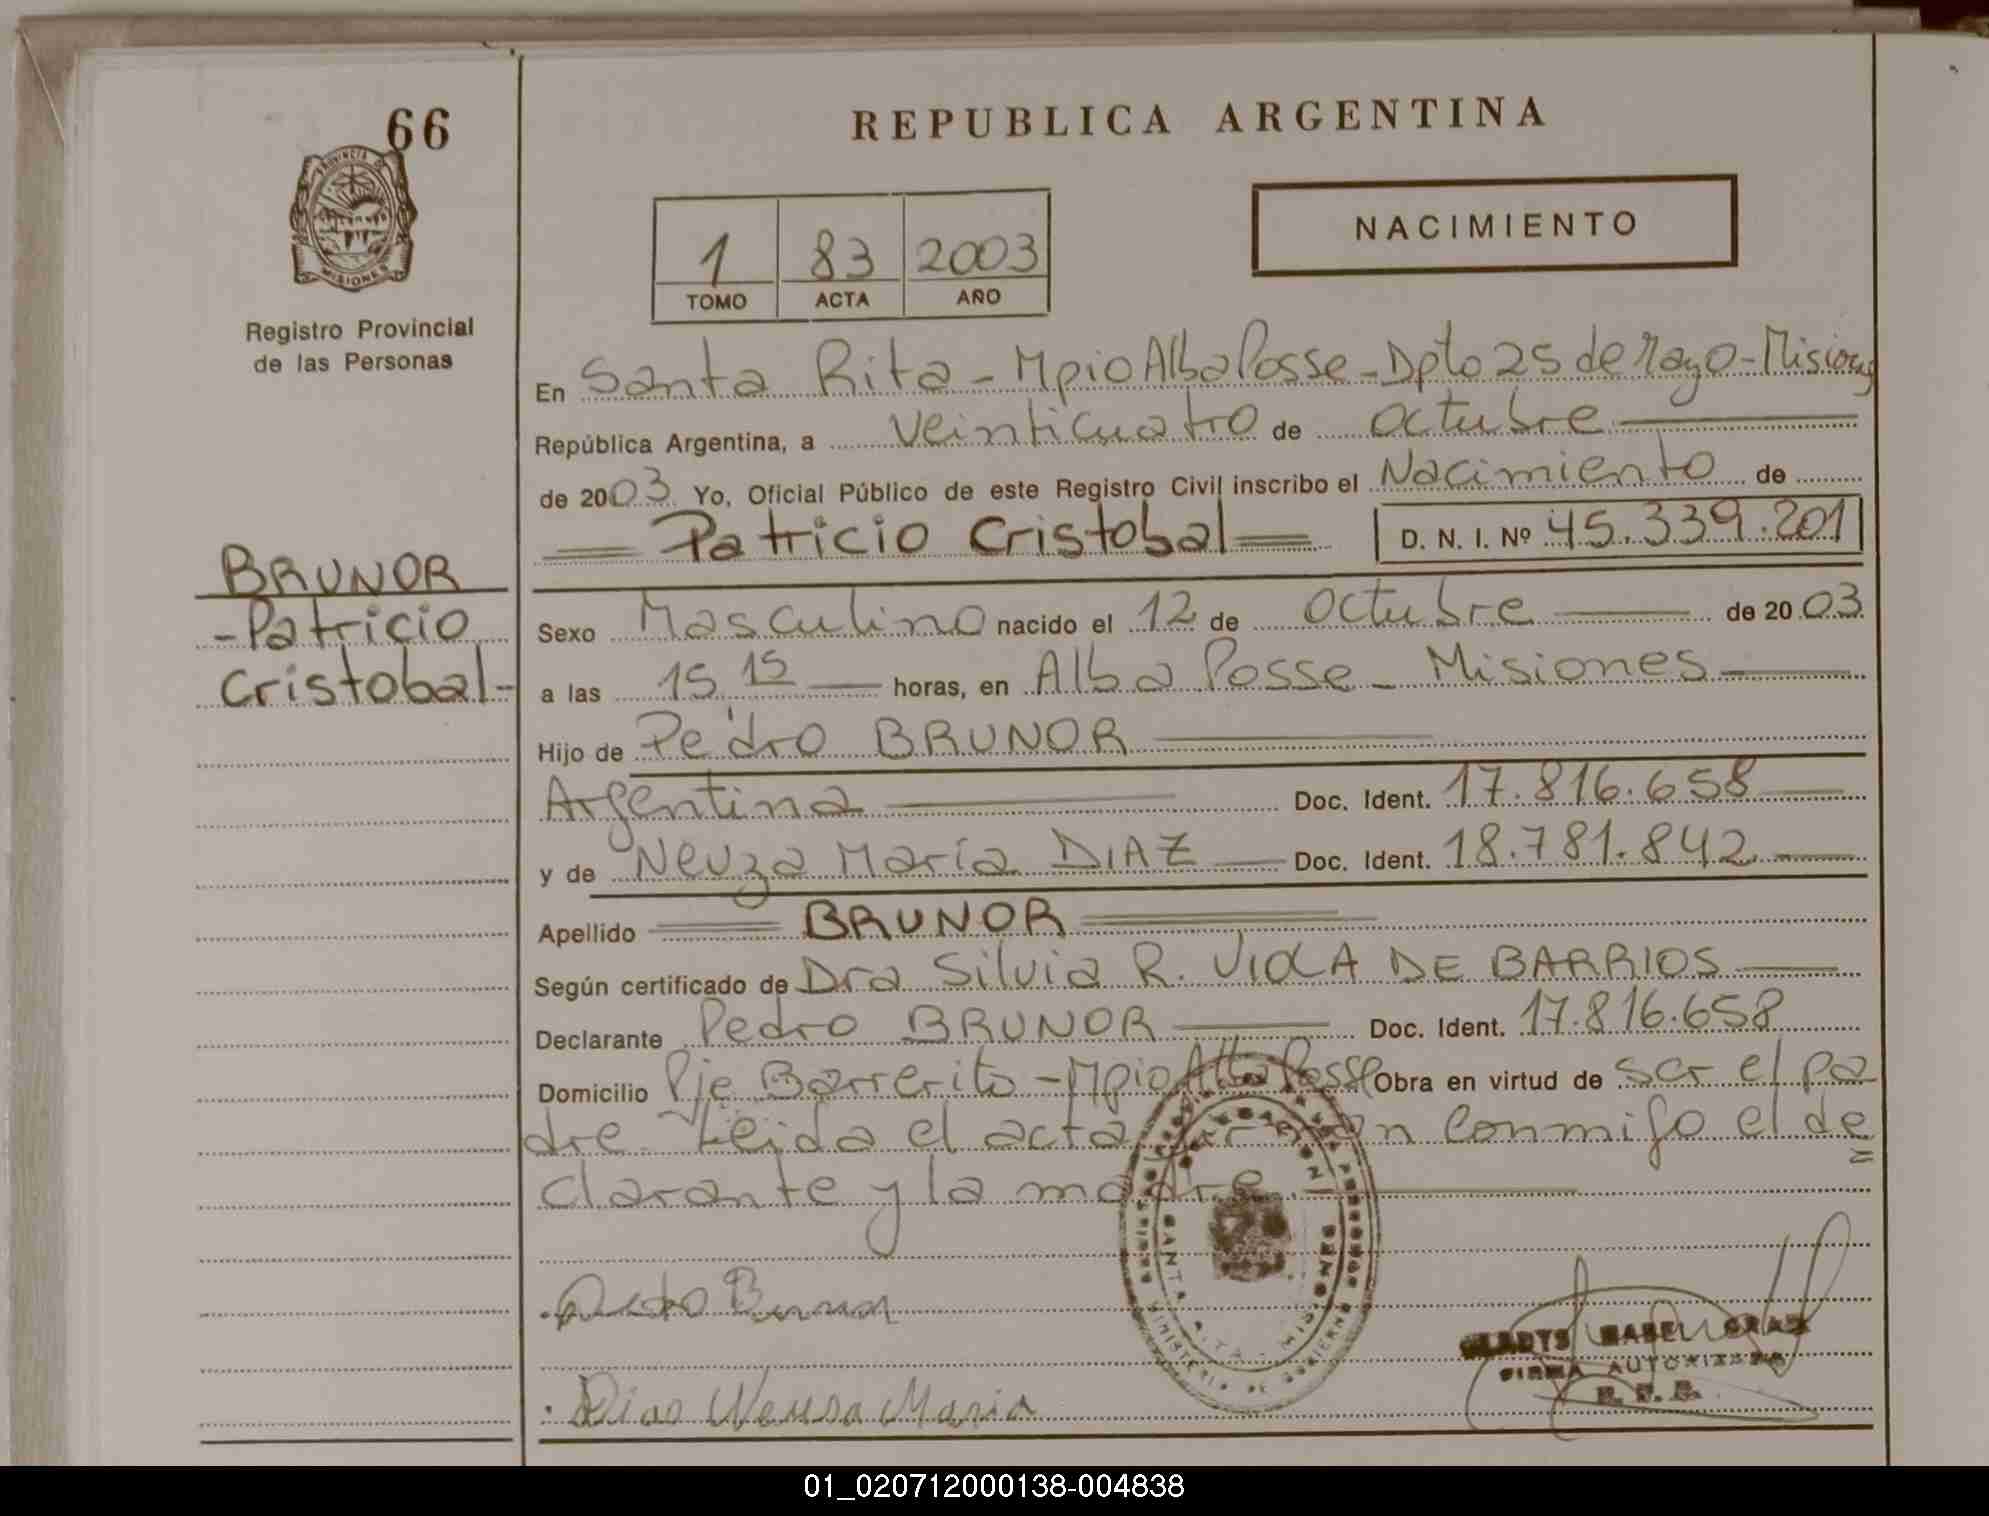 66
PROVINCIA DE
MISIONES
Registro Provincial
de las Personas
BRUNOR
-Patricio
Cristobal-
REPUBLICA ARGENTINA
1 83 2003
TOMO ACTA AÑO
NACIMIENTO
En Santa Rita - Mpio Alba Posse - Dpto 25 de Mayo - Misiones
República Argentina, a veinticuatro de octubre
de 2003 Yo, Oficial Público de este Registro Civil inscribo el Nacimiento de
Patricio Cristobal D. N. I. Nº 45.339.201
Sexo Masculino nacido el 12 de Octubre de 2003
a las 15 15 horas, en Alba Posse - Misiones
Hijo de Pedro BRUNOR
Argentina Doc. Ident. 17.816.658
y de Neuza María DIAZ Doc. Ident. 18.781.842
Apellido BRUNOR
Según certificado de Dra Silvia R. VIOLA DE BARRIOS
Declarante Pedro BRUNOR Doc. Ident. 17.816.658
Domicilio Pje Barrerito - Mpio Alba Posse Obra en virtud de ser el pa
dre. Leida el acta firman conmigo el de
clarante y la madre.
Brunor
Dias Neusa Maria
SANTA RITA - MIS
MINISTERIO DE GOBIERNO
GLADYS ISABEL
FIRMA AUTORIZADA
01_020712000138-004838